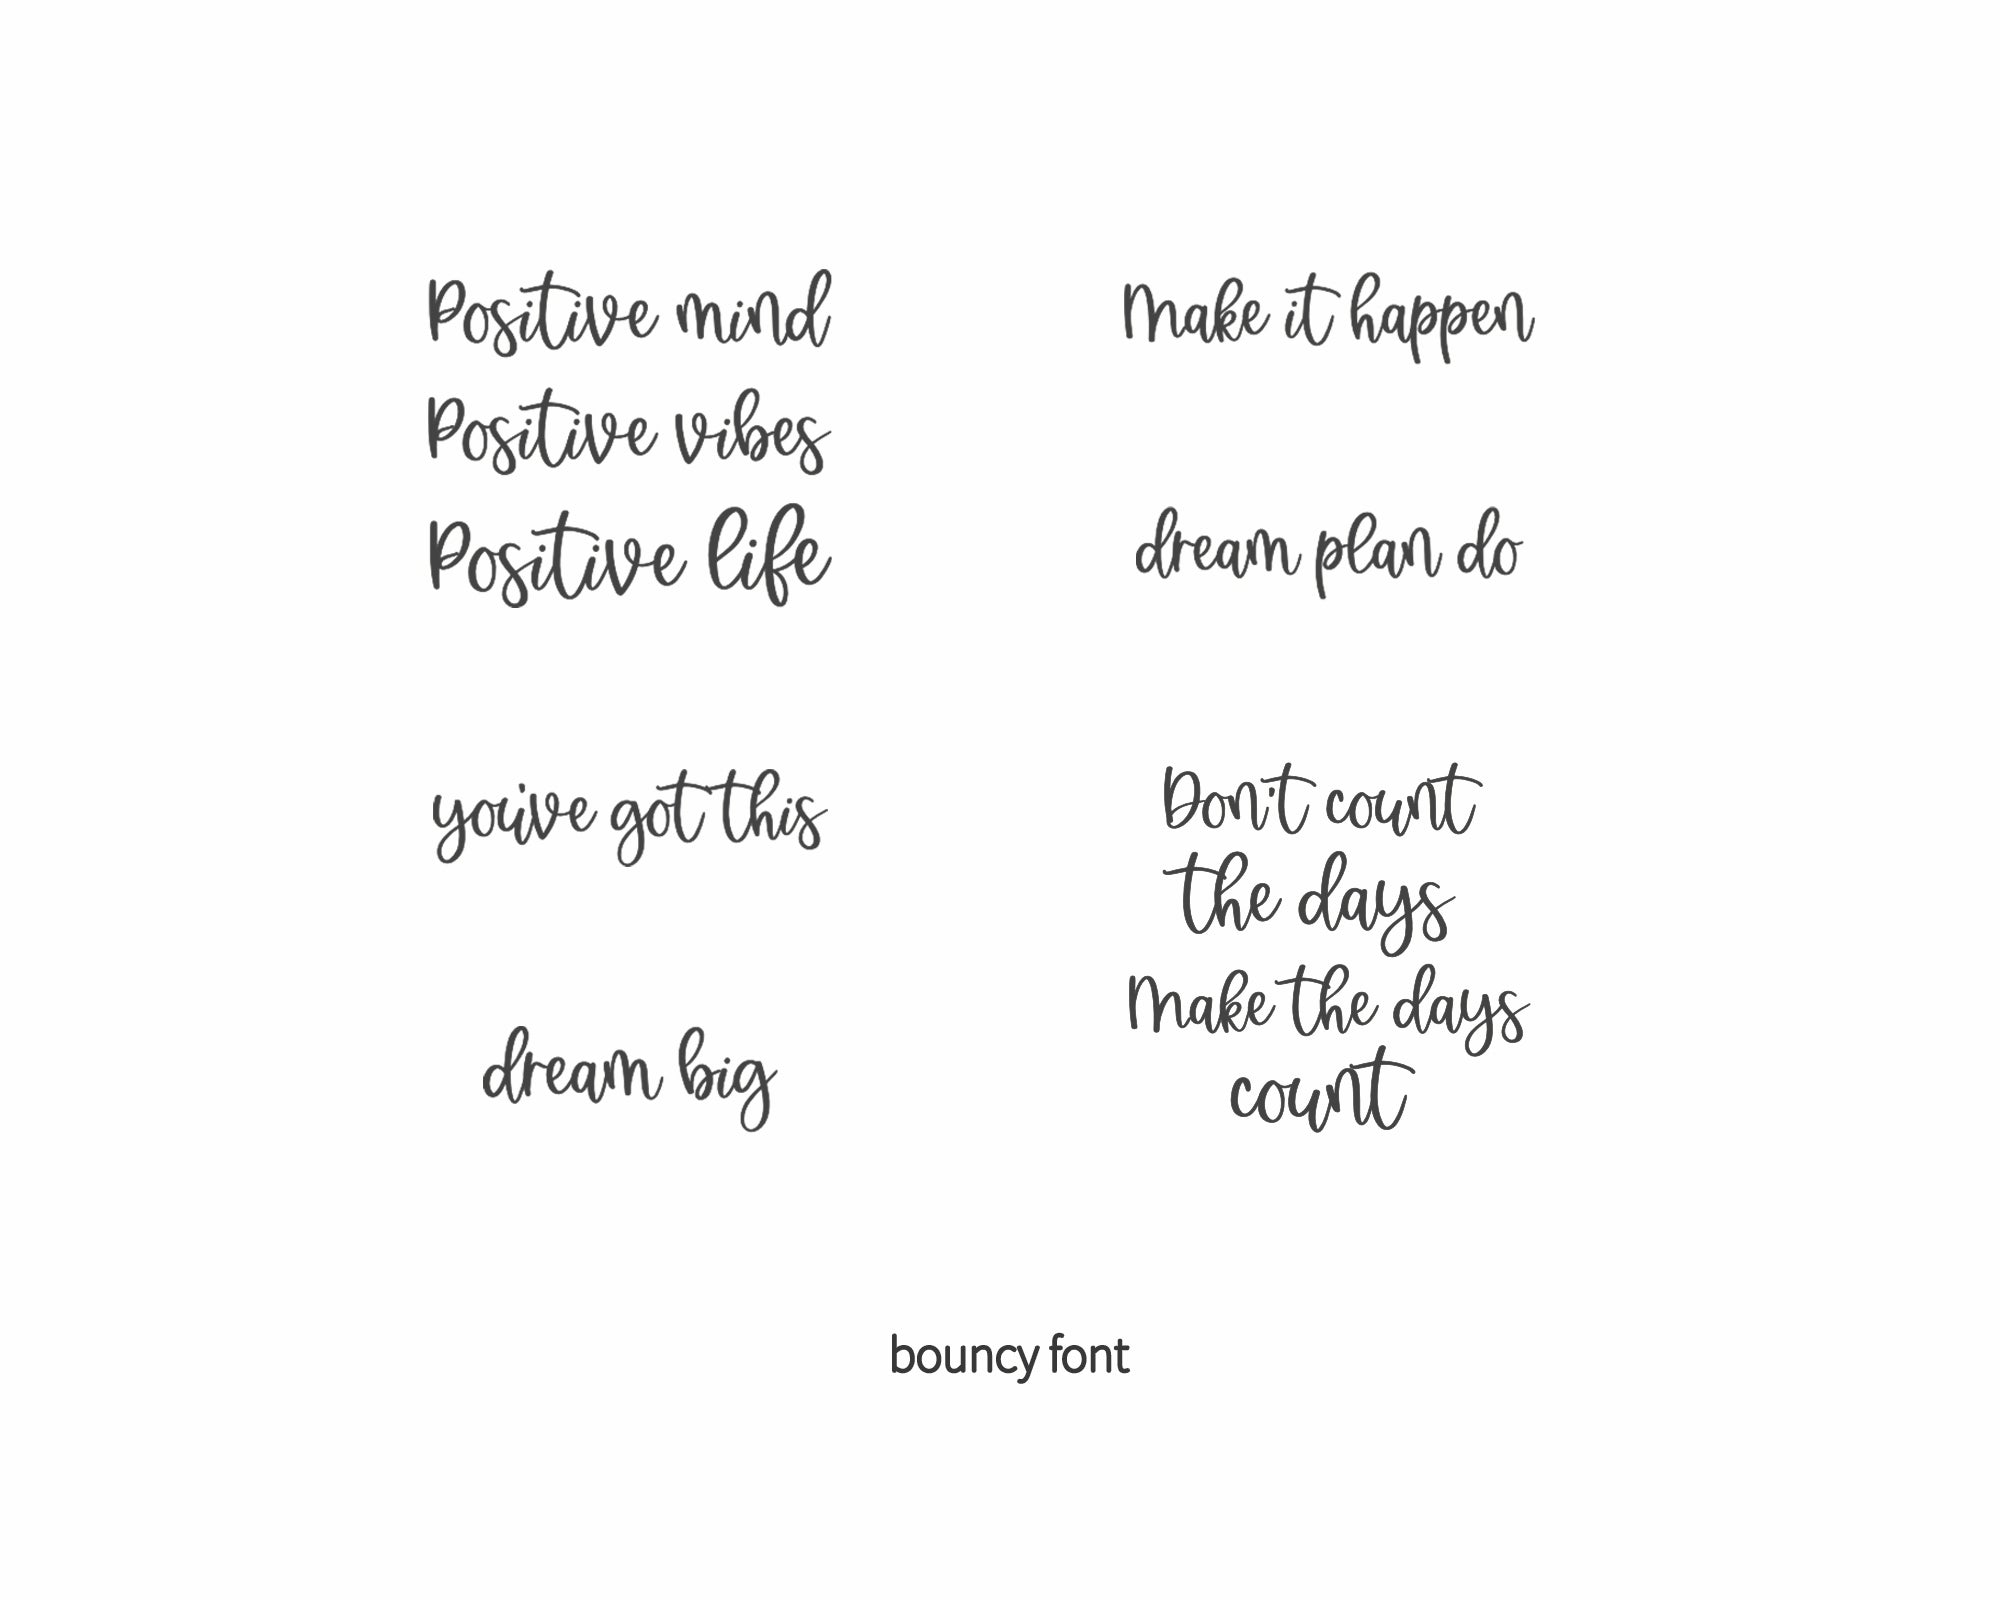 Positive mind
Positive vibes
Positive life
you've got this
dream big
Make it happen
dream plan do
Don't count
the days
Make the days
count
bouncy font